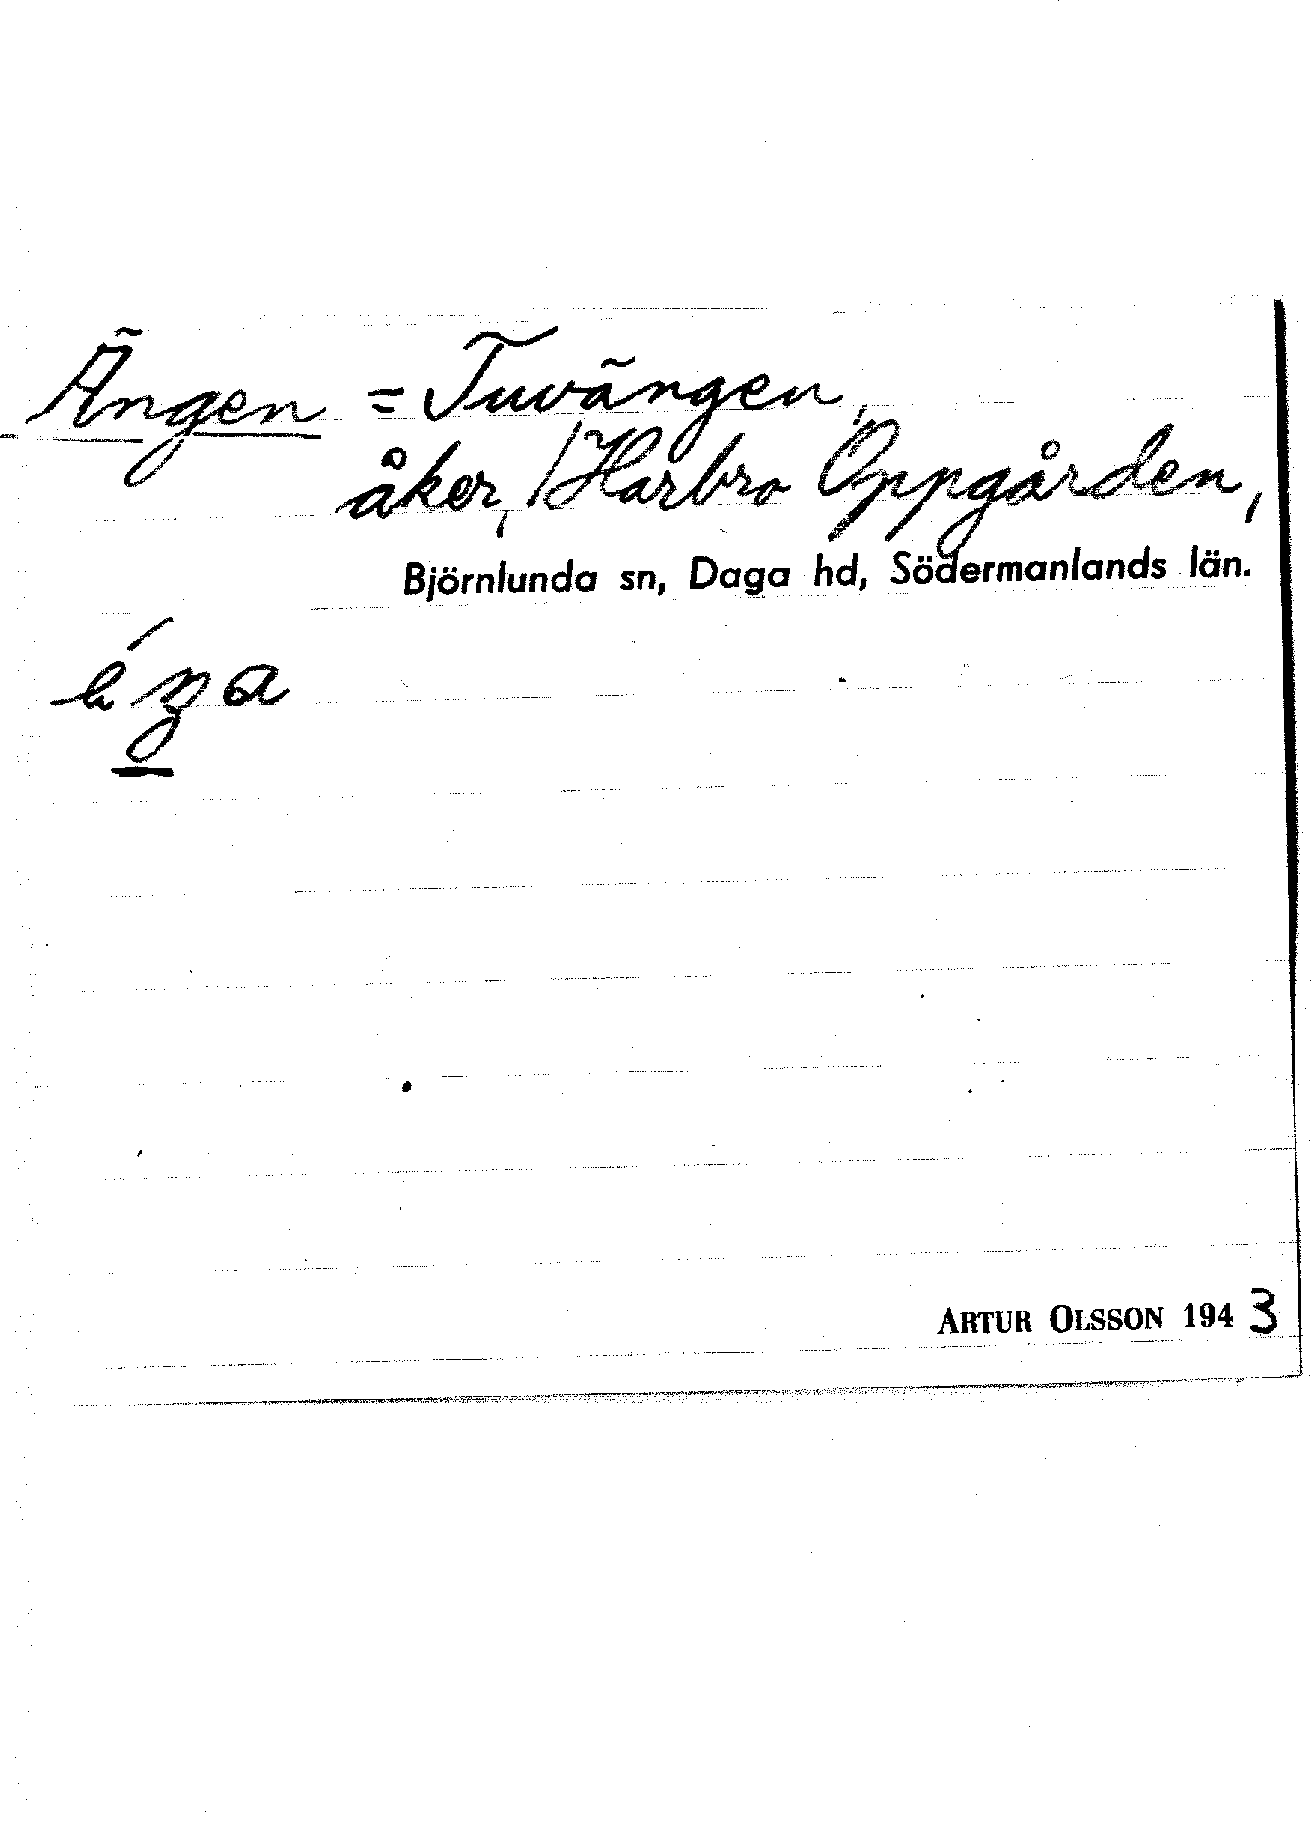 Ängen = Tuvängen,
åker, Harbro Oppgården,
Björnlunda sn, Daga hd, Södermanlands län.
ARTUR OLSSON 1943